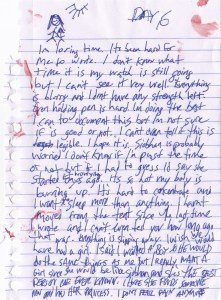 DAY 16
I'm losing time. It's been hard for
me to write. I don't know what
time it is my watch is still going
but I can't see it very well. Everything
is blurry and I don't have any strength left.
Even holding pen is hard. I'm doing the best
I can to document this but I'm not sure
if is good or not. I can't even tell this is
legible. I hope it is. Siobhan is probably
worried. I don't know if I'm past the time
or not but if I had to guess I'd say she
started worrying days ago. It's as if my body is
burning up. It's hard to concentrate and
I want to sleep more than anything. I haven't
moved from the tent since my last time
I wrote and I can't even tell you how long ago
that was. Everything is slipping away. I wish I could
have had a girl. I said I wanted a boy he would
do the same things as me but I really want a
girl. She would be like Siobhan and she's the best
person I've ever known.